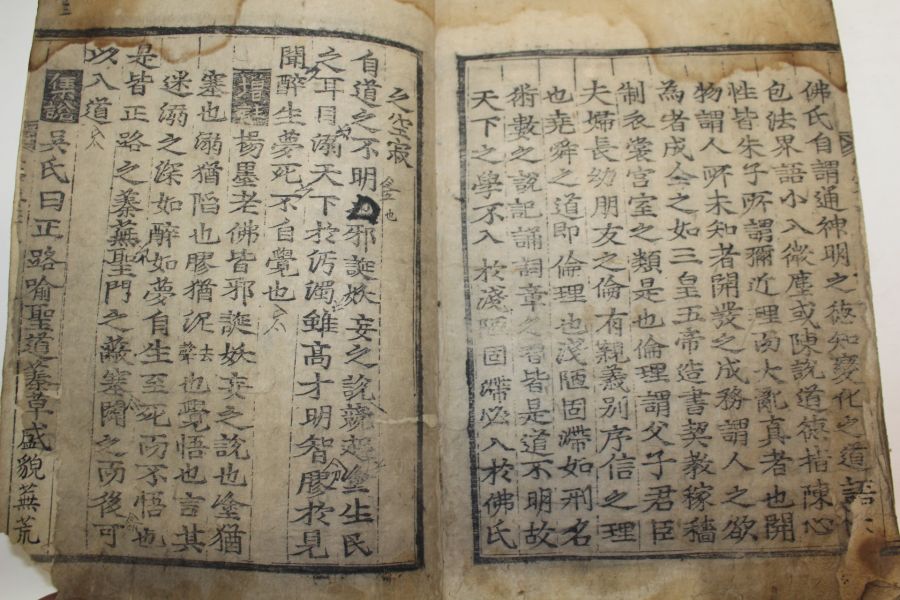 佛氏自謂通神明之德知變化之道語大
包法界語小入微塵或陳說道德指陳心
性皆朱子所謂彌近理而大亂真者也開
物謂人所未知者開發之成務謂人之欲
為者成全之如三皇五帝造書契教稼穡
制衣裳宮室之類是也倫理謂父子君臣
夫婦長幼朋友之倫有親義別序信之理
也堯舜之道即倫理也淺陋固滯如刑名
術數之說記誦詞章之習皆是道不明故
天下之學不入於淺陋固滯必入於佛氏
之空寂
自道之不明也邪誕妖妄之說競起塗生民
之耳目溺天下於汚濁雖高才明智膠於見
聞醉生夢死不自覺也
增註揚墨老佛皆邪誕妖妄之說也塗猶
塞也溺猶陷也膠猶泥去聲也覺悟也言其
迷溺之深如醉如夢自生至死而不悟也
是皆正路之蓁蕪聖門之蔽塞闢之而後可
以入道
集說吳氏曰正路喻聖道蓁草盛貌蕪荒